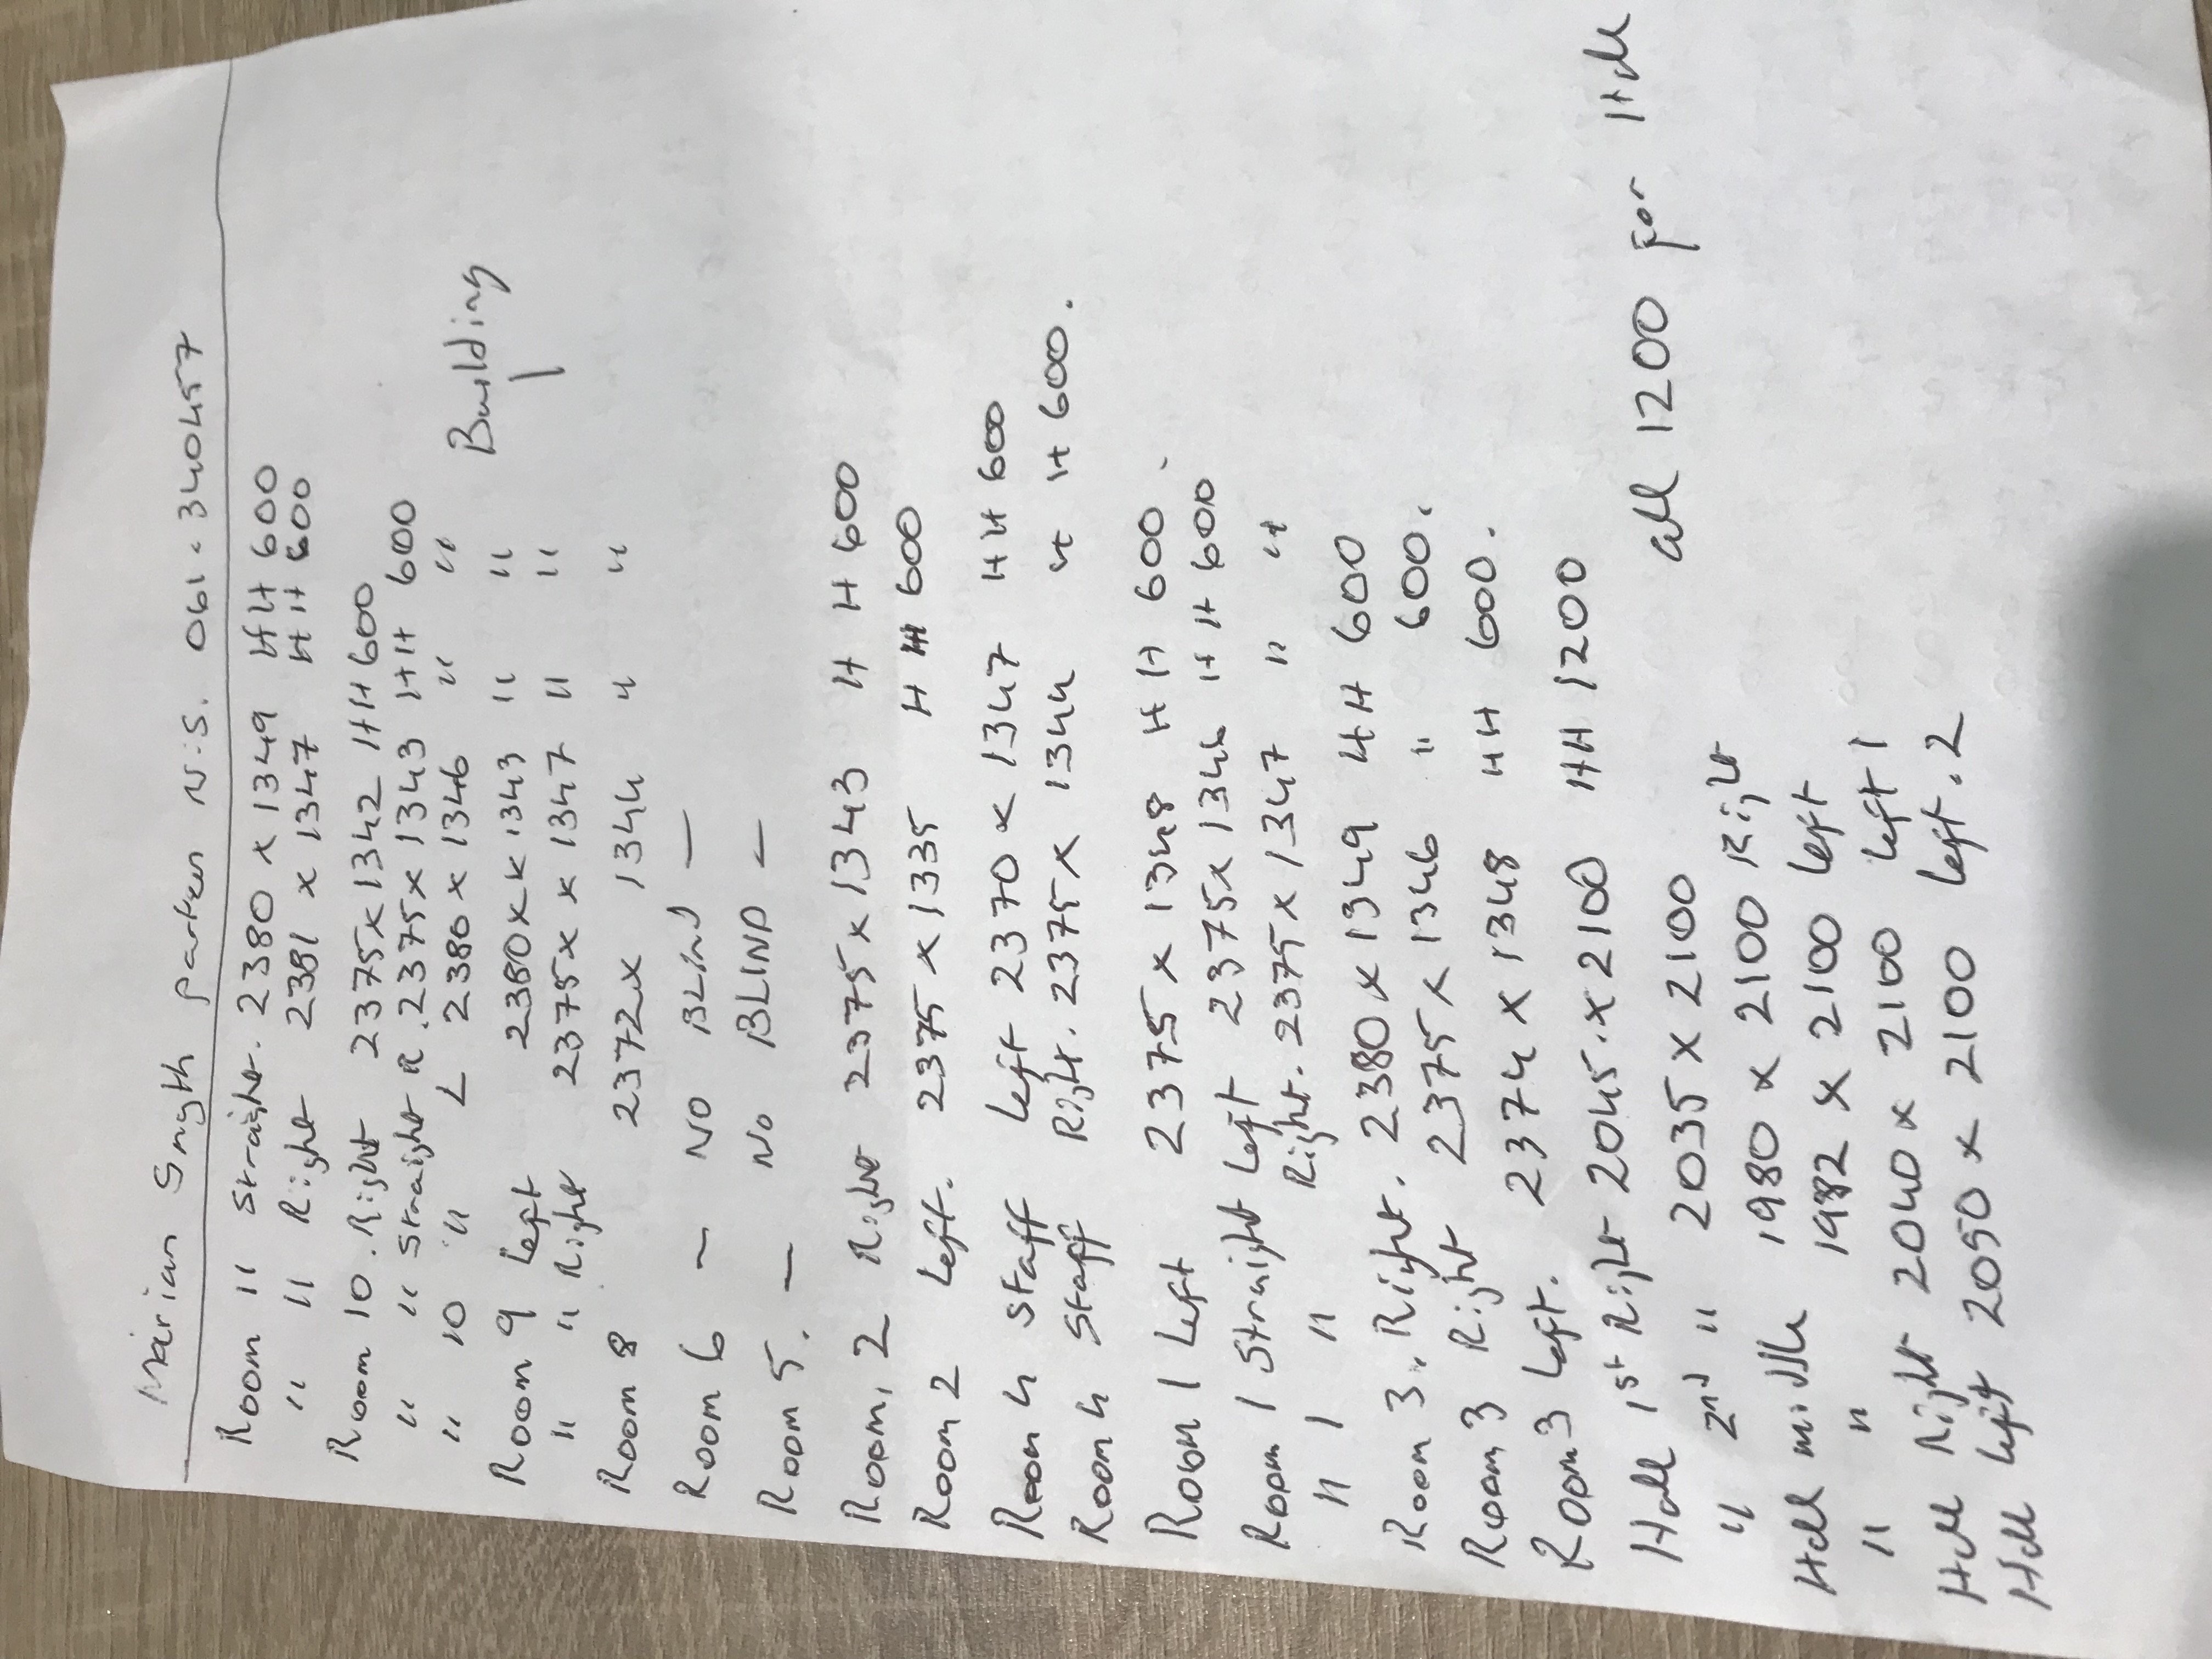 Marian Smyth parteen N.S. 061-340457
Room 11 straight. 2380 x 1349 HH 600
" 11 Right 2381 x 1347 HH 600
Room 10. Right 2375 x 1342 HH 600
" " straight R. 2375 x 1343 HH 600
" 10 " L 2380 x 1346 " "
Building
Room 9 Left 2380 x x 1343 " "
" " Right 2375 x x 1347 " "
Room 8 2372 x 1344 " "
Room 6 - NO BLIND -
Room 5. - No BLIND -
Room, 2 Right 2375 x 1343 HH 600
Room 2 Left. 2375 x 1335 HH 600
Room 4 Staff Left 2370 x 1347 HH 600
Room 4 Staff Right. 2375 x 1344 HH 600.
Room 1 Left 2375 x 1348 HH 600.
Room 1 Straight Left 2375 x 1346 HH 600
" 1 " Right. 2375 x 1347 " "
Room 3. Right. 2380 x 1349 HH 600
Room 3 Right 2375 x 1346 " 600.
Room 3 Left. 2374 x 1348 HH 600.
Hall 1st Right 2045. x 2100 HH 1200
" 2nd " 2035 x 2100 all 1200 for Hall
Hall middle 1980 x 2100 Right
" " 1982 x 2100 Left
Hall Right 2040 x 2100 Left 1
Hall Left 2050 x 2100 Left. 2